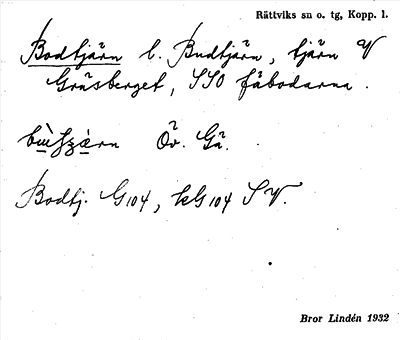 Rättviks sn o. tg, Kopp. l.
Bodtjärn l. Budtjärn, tjärn V
Gräsberget, SSO fäbodarna.
Öv. Gä.
Bodtj. G104, kG104 SV.
Bror Lindén 1932